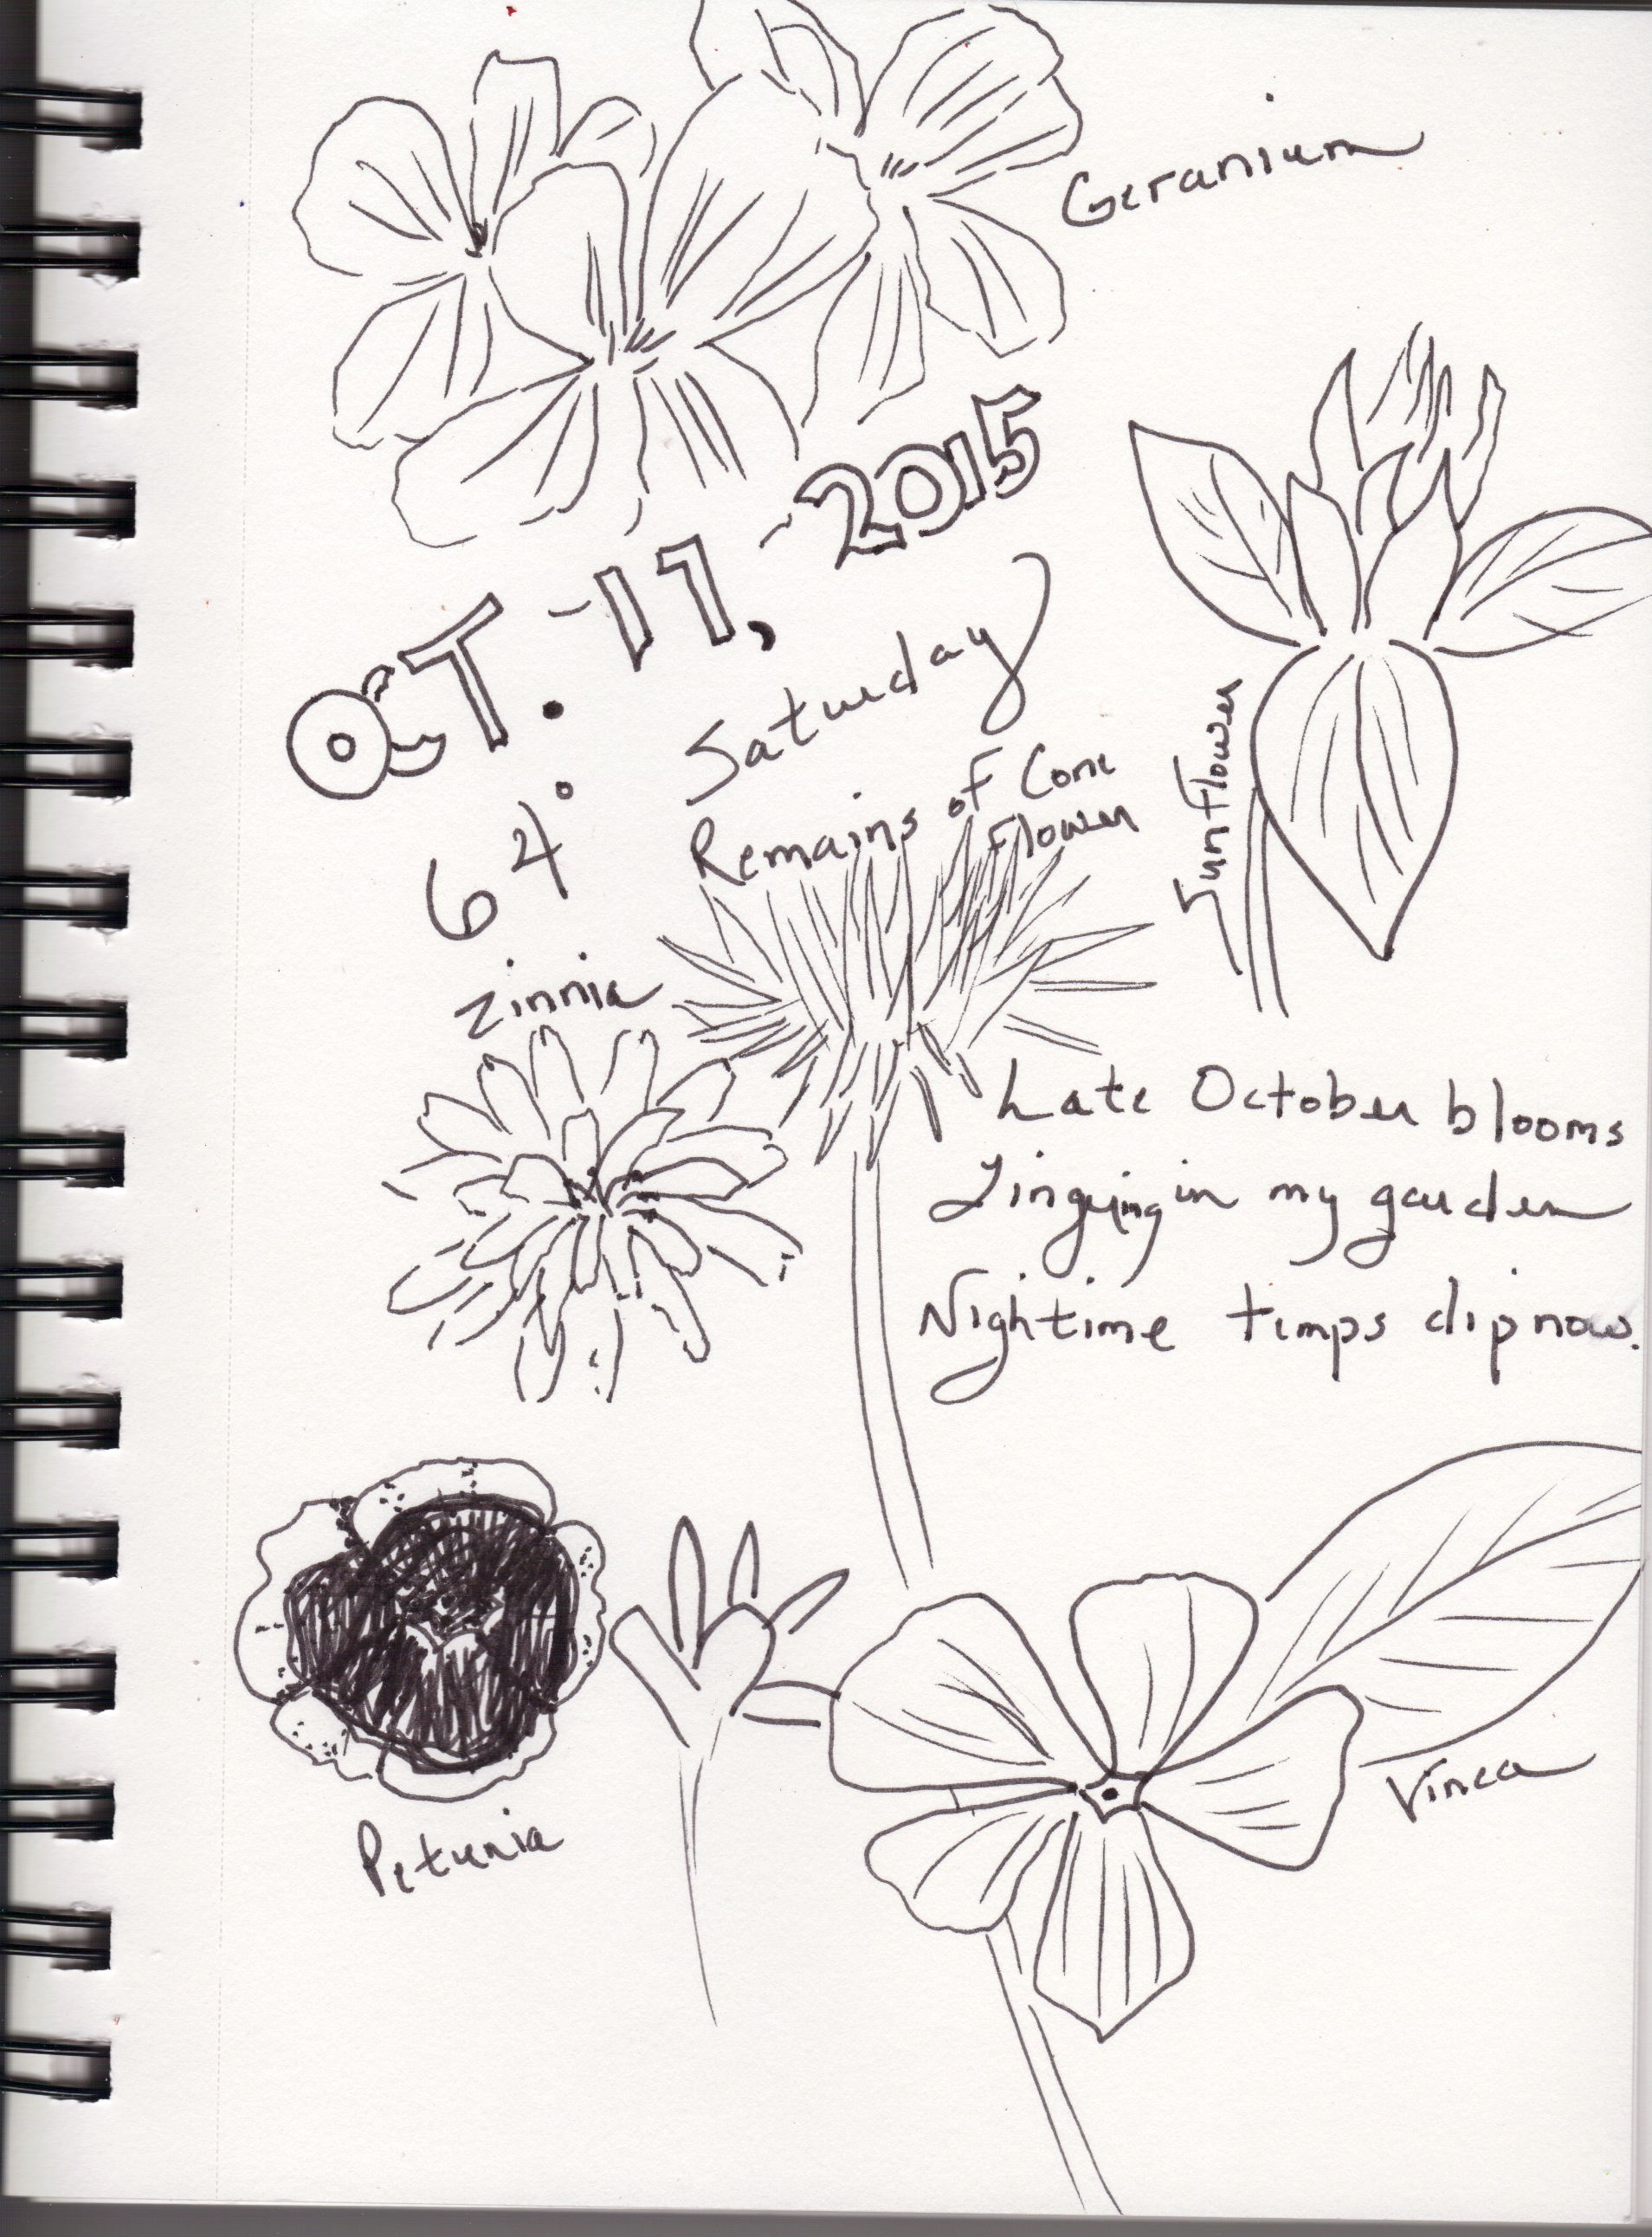 Geranium
OCT. -17, -2015
Saturday
64°
Remains of Cone
Flower
Sunflower
Zinnia
Late October blooms
Lingering in my garden
Nightime temps dip now.
Petunia
Vinca